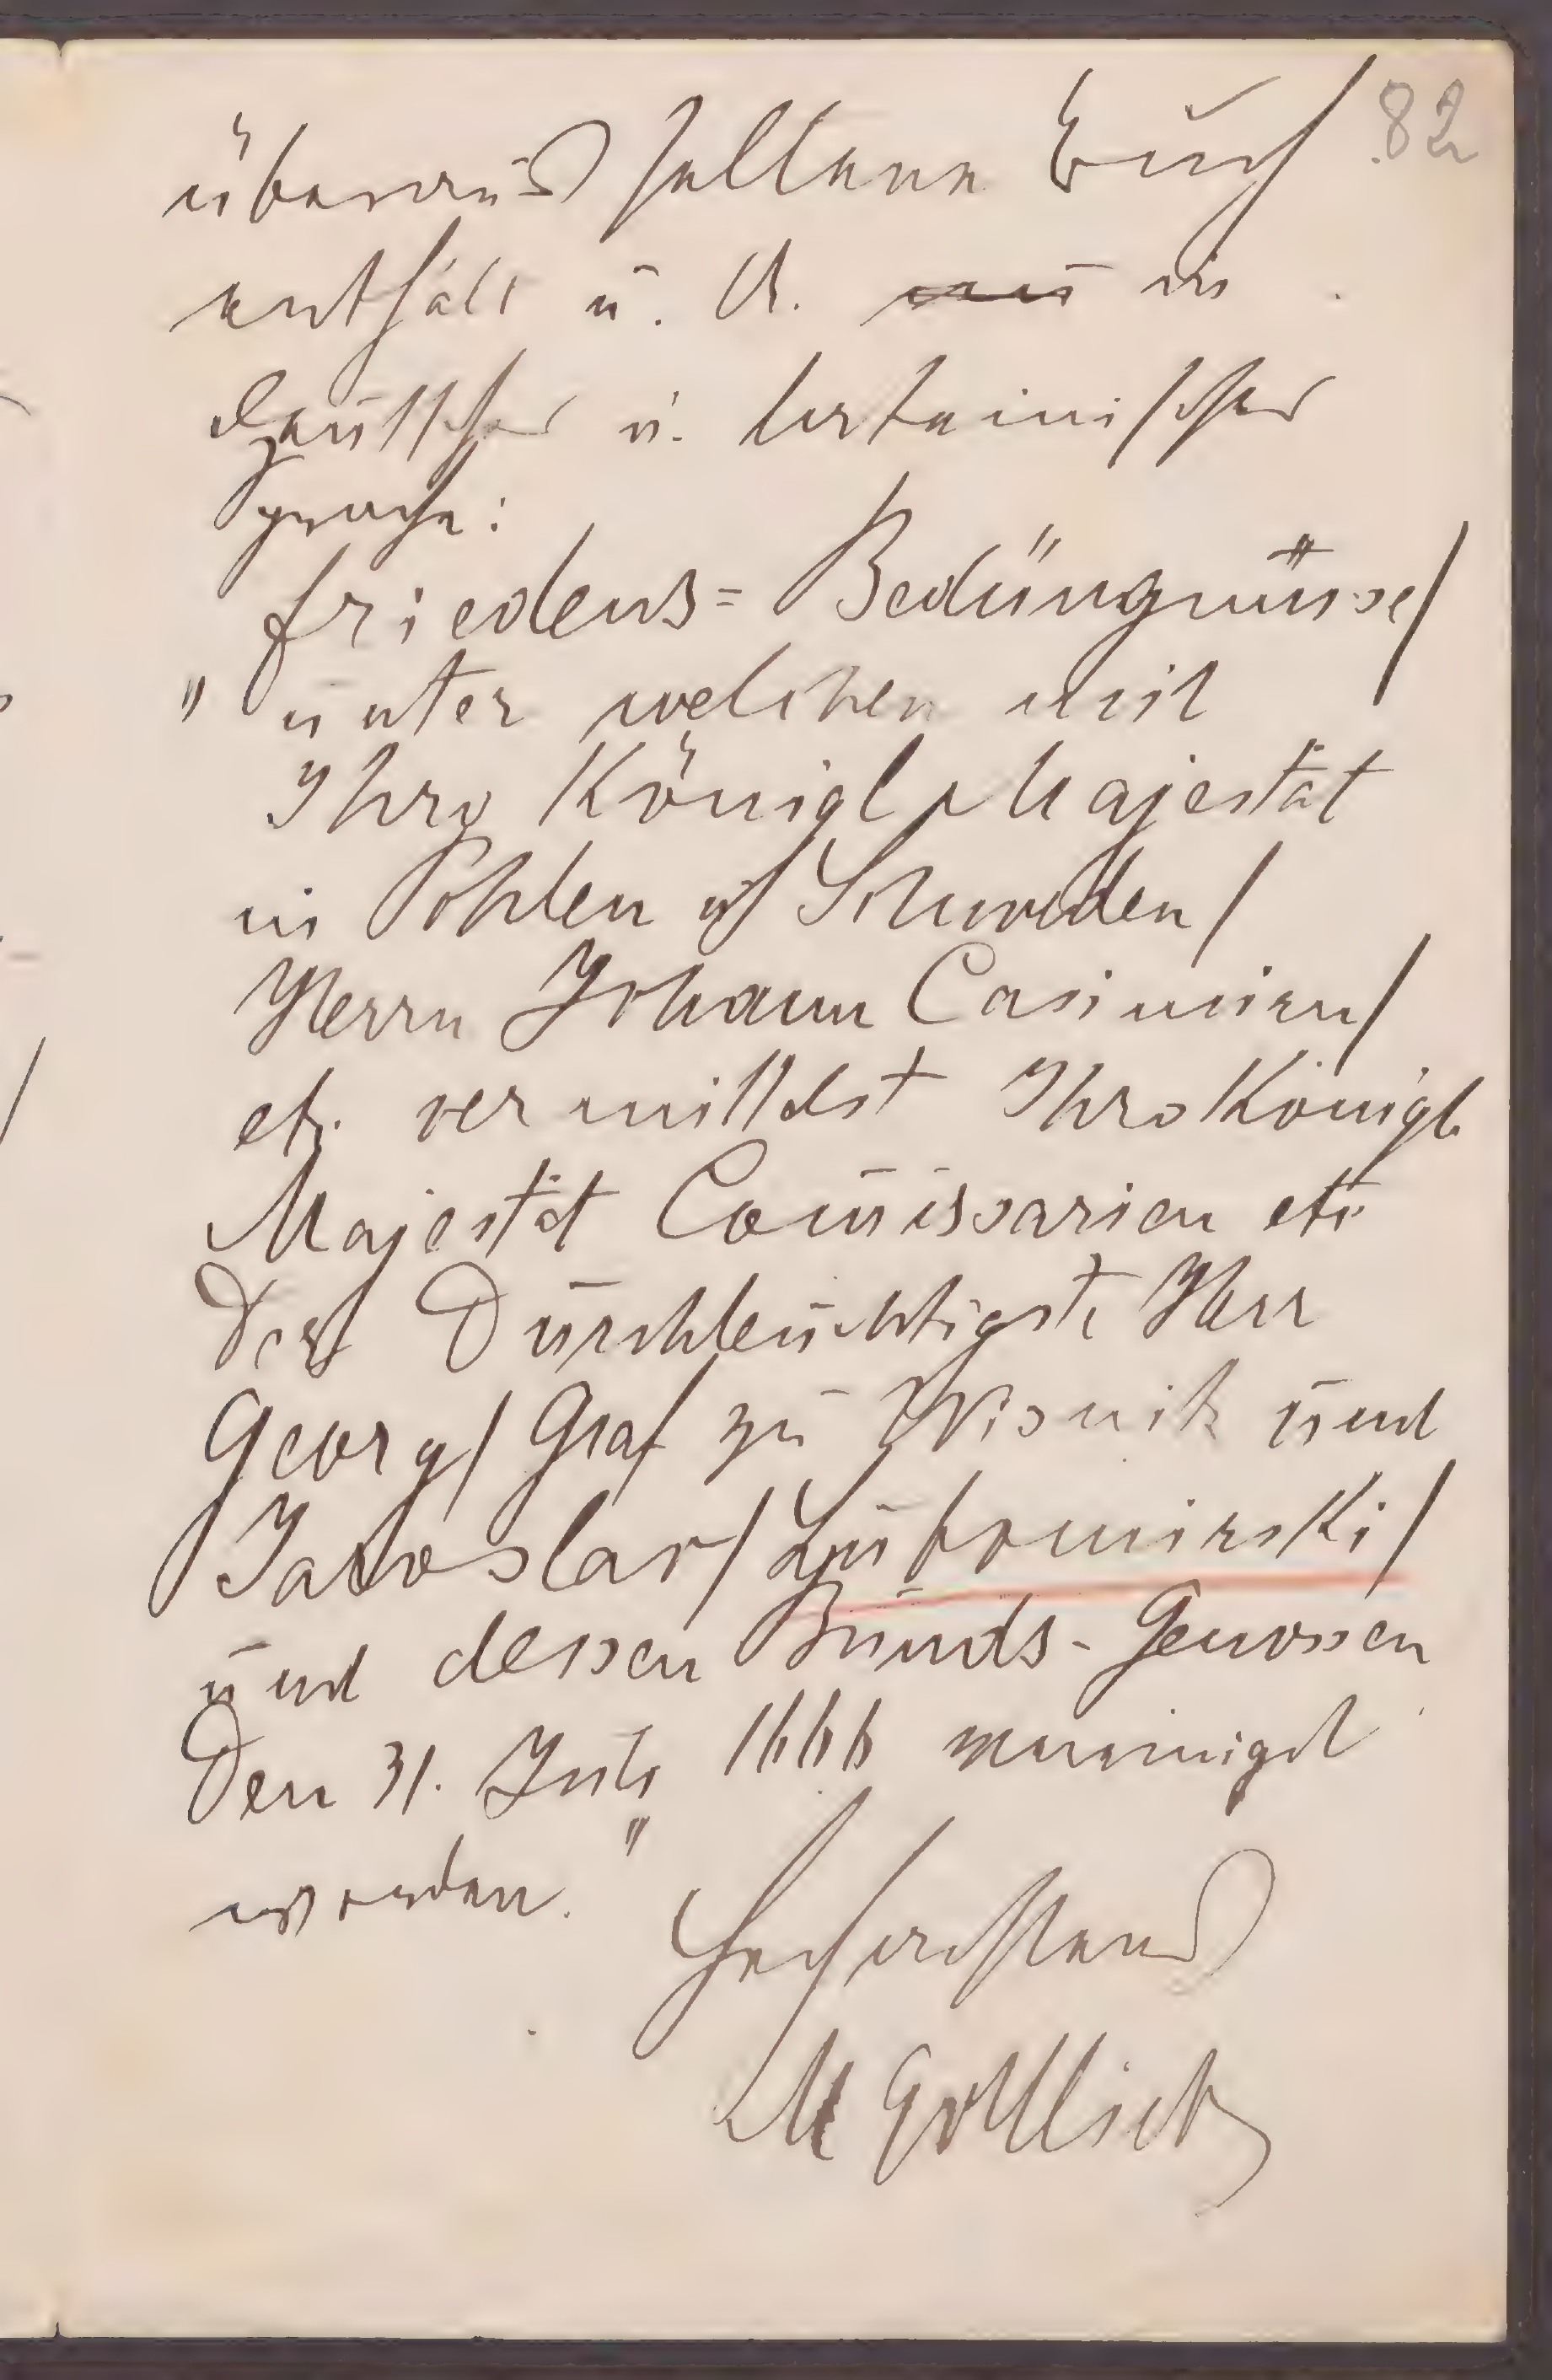 82
überaus seltene Buch
enthält u. A. in
deutscher u. lateinischer
Sprache:
Friedens= Bedüngnüsse/
" unter welchen mit
Ihro Königl Majestät
in Pohlen u Schweden/
Herrn Johann Casimirn/
etc. vermittelst Ihro Königl
Majestät Com̄issarien etc
Der Durchleuchtigste Herr
Georg/ Graf zu Wisnitz und
Jaroslav/ Lubomirski/
und dessen Bunds-Genossen
Den 31. July 1666 vereinigt
worden."
Hochachtend
M Gottlieb